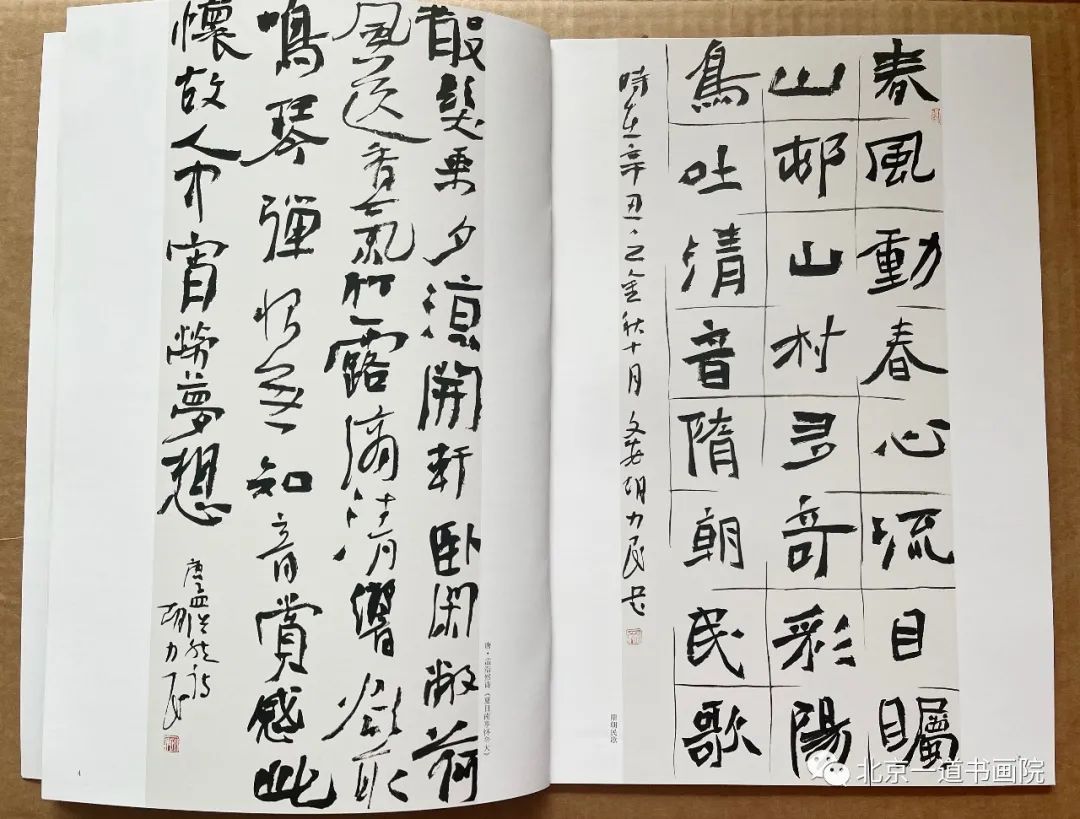 散髮乘夕涼開軒臥閑敞荷
風送香氣竹露滴清響欲取
鳴琴彈恨無知音賞感此
懷故人中宵勞夢想
唐孟浩然詩
胡力民
唐·孟浩然诗《夏日南亭怀辛大》
4
春風動春心流目矚
山邨山村多奇彩陽
鳥吐清音隋朝民歌
時在辛丑之金秋十月文安胡力民書
隋朝民歌
北京一道书画院